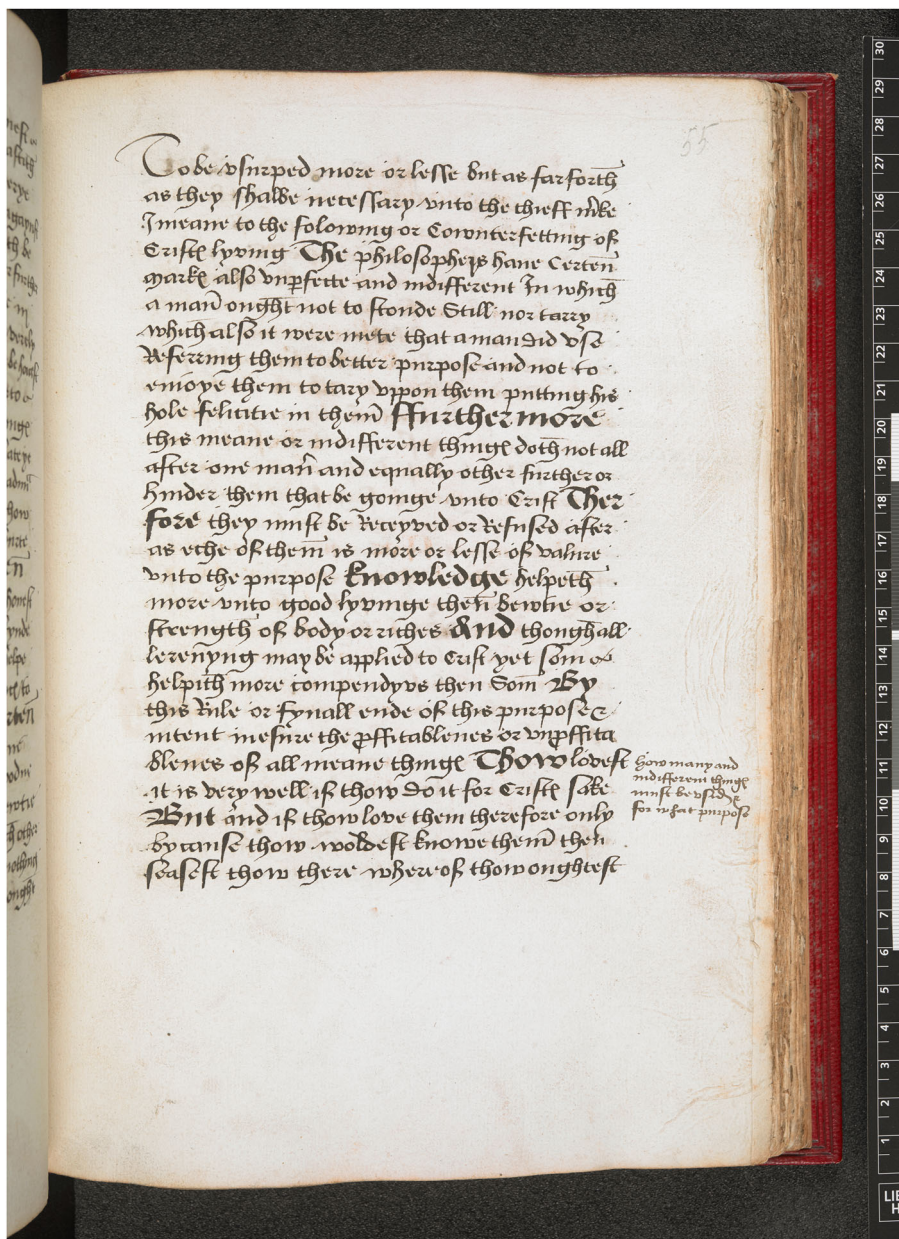 55
To be vsurped more or lesse but as far forth
as they shalbe necessary vnto the thieff m̃ke
I meane to the folowing or Cownterfetting of
Cristꝭ lyving The philosophers haue Certen
markꝭ also vnꝑfecte and indifferent In which
a man ought not to stonde Still nor tarry
which also it were mete that a man did vse
Referring them to better purpose and not to
enioye them to tary vppon them putting his
hole felicitie in them ffurthermore
this meane or indifferent thingꝭ doth not all
after one man̄ and equally other further or
hinder them that be goinge vnto Crist Ther
fore they must be Receyved or Refused after
as eche of them is more or lesse of valure
vnto the purpose knowledge helpeth
more vnto good lyvinge then bewtie or
strength of body or riches And though all
lerenyng may be applied to Crist yet som
helpith more compendyvs then Som By
this Rule or fynall ende of this purpose &
intent mesure the ꝓffitablenes or vnꝓffita
blenes of all meane thingꝭ Thow lovest
it is very well if thow do it for Cristꝭ sake
But and if thow love them therefore only
by cause thow woldest knowe them then
seasest thow there whereof thow oughtest
how many and
indifferent thingꝭ
must be vsid &
for what purpose